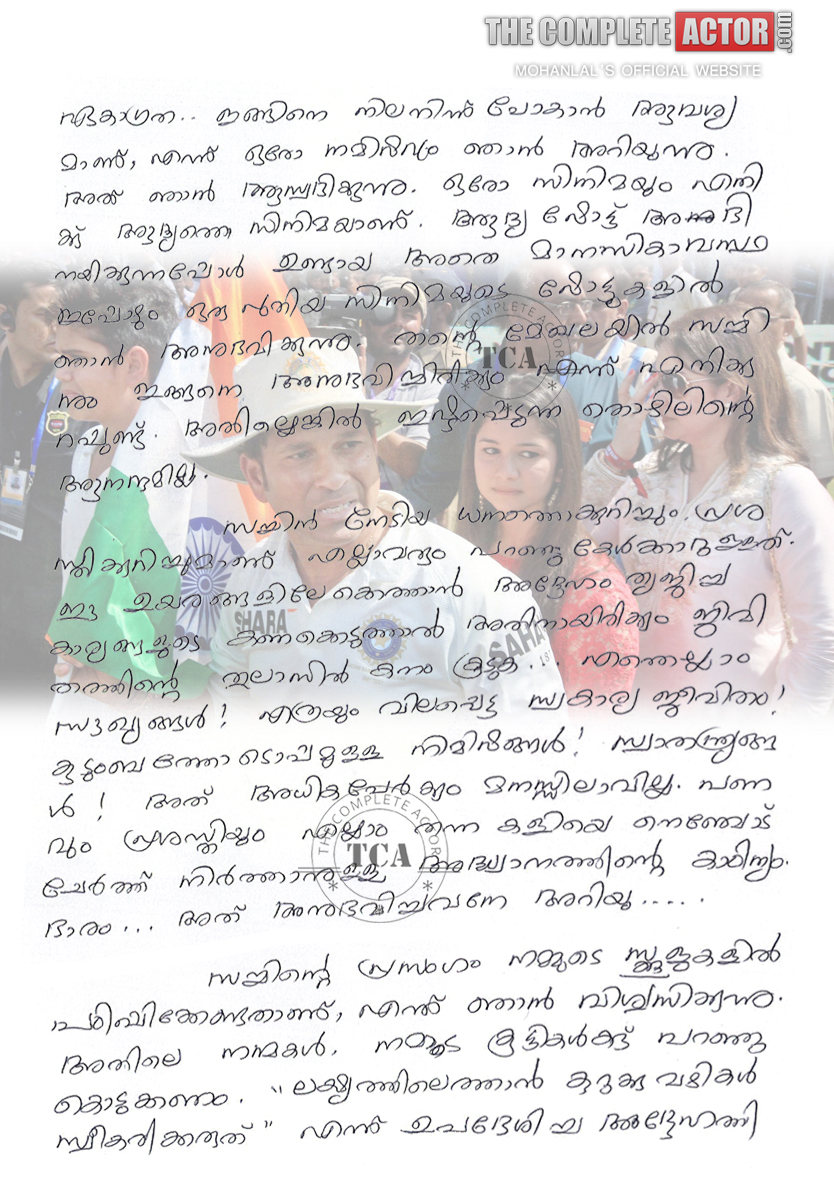 THE COMPLETE ACTOR.com
MOHANLAL'S OFFICIAL WEBSITE
ഏകാഗ്രത.. ഇങ്ങിനെ നിലനിന്ന് പോകാൻ ആവശ്യ
മാണ്, എന്ന് ഒരോ നിമിഷവും ഞാൻ അറിയുന്നു.
അത് ഞാൻ ആസ്വദിക്കുന്നു. ഒരോ സിനിമയും എനി
ക്ക് ആദ്യത്തെ സിനിമയാണ്. ആദ്യ ഷോട്ട് അഭി
നയിക്കുന്നപ്പോൾ ഉണ്ടായ അതെ മാനസികാവസ്ഥ
ഇപ്പോഴും ഒരു പുതിയ സിനിമയുടെ ഷോട്ടുകളിൽ
ഞാൻ അനുഭവിക്കുന്നു. തന്റെ മേഖലയിൽ സച്ചി
നും ഇങ്ങനെ അനുഭവിച്ചിരിക്കും എന്ന് എനിക്കു
റപ്പുണ്ട്. അതില്ലെങ്കിൽ ഇഷ്ടപ്പെടുന്ന തൊഴിലിന്റെ
ആനന്ദമില്ല.
സച്ചിൻ നേടിയ ധനത്തൊക്കുറിച്ചും, പ്രശ
സ്തിക്കുറിച്ചുമാണ് എല്ലാവരും പറഞ്ഞു കേൾക്കാറുള്ളത്.
ഈ ഉയരങ്ങളിലേക്കെത്താൻ അദ്ദേഹം ത്യജിച്ച
കാര്യങ്ങളുടെ കണക്കെടുത്താൽ അതിനായിരിക്കും ജീവി
തത്തിന്റെ തുലാസിൽ കനം കൂടുക.. എന്തെല്ലാം
സുഖങ്ങൾ! എത്രയും വിലപ്പെട്ട സ്വകാര്യ ജീവിതം!
കുടുംബത്തോടൊപ്പമുള്ള നിമിഷങ്ങൾ! സ്വാതന്ത്ര്യങ്ങ
ൾ! അത് അധികപേർക്കും മനസ്സിലാവില്ല. പണ
വും പ്രശസ്തിയും എല്ലാം തന്ന കളിയെ നെഞ്ചോട്
ചേർത്ത് നിർത്താനുള്ള അദ്ധ്വാനത്തിന്റെ കാഠിന്യം.
ഭാരം... അത് അനുഭവിച്ചവനേ അറിയൂ.....
സച്ചിന്റെ പ്രസംഗം നമ്മുടെ സ്കൂളുകളിൽ
പഠിപ്പിക്കേണ്ടതാണ്, എന്ന് ഞാൻ വിശ്വസിക്കുന്നു.
അതിലെ നന്മകൾ, നമ്മുടെ കുട്ടികൾക്ക് പറഞ്ഞു
കൊടുക്കണം. "ലക്ഷ്യത്തിലെത്താൻ കുറുക്കുവഴികൾ
സ്വീകരിക്കരുത്" എന്ന് ഉപദേശിച്ച അദ്ദേഹത്തി
THE COMPLETE ACTOR
TCA
THE COMPLETE ACTOR
TCA
SAHARA
SAHARA